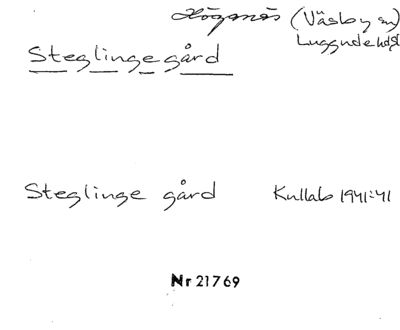 Höganäs (Väsby sn)
Luggude hd
Steglinge gård
Steglinge gård Kullab 1941:41
Nr 21769